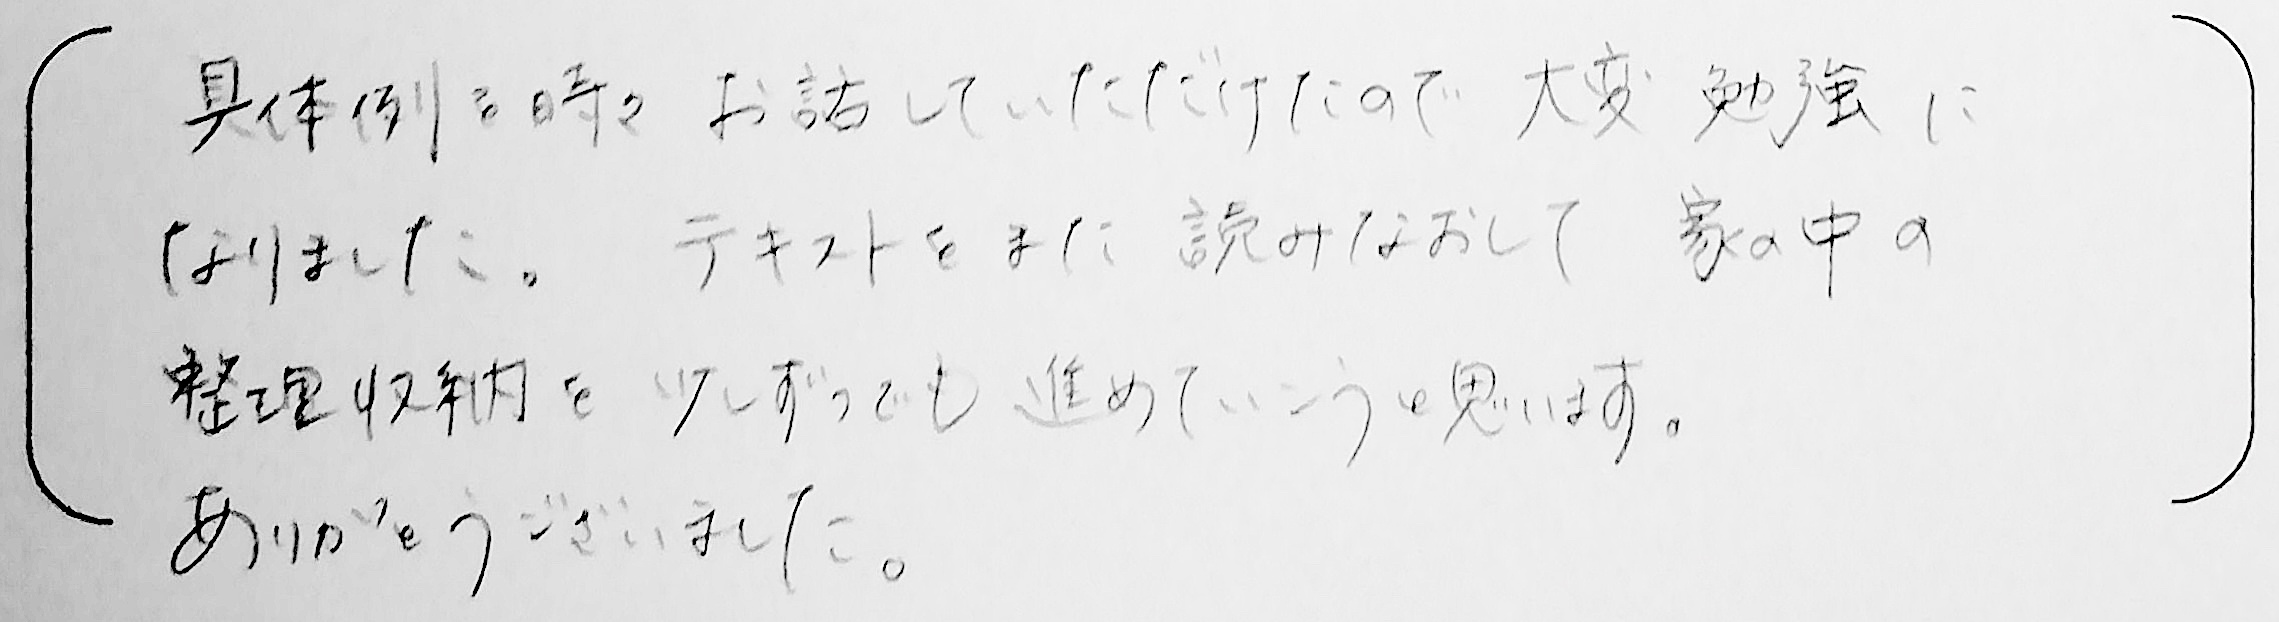 具体例を時々お話していただけたので大変勉強に
なりました。 テキストをまた読みなおして家の中の
整理収納を少しずつでも進めていこうと思います。
ありがとうございました。